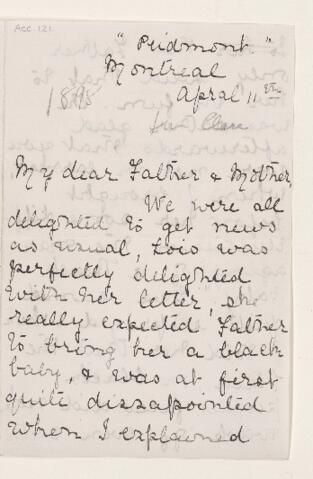 Acc. 121
"Peidmont."
Montreal
Apral 11th
1895
My dear Father & Mother,
We were all
delighted to get news
as usual, Lois was
perfectly delighted
with her letter, she
really expected Father
to bring her a black
baby, & was at first
quite dissapointed
when I explained